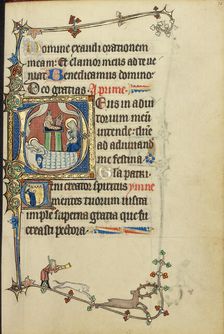 Domine exaudi orationem
meam: Et clamor meus ad te ue
niat Benedicamus domino
Deo gratias A prime
Deus in adiu
torium meu
intende: dne
ad adiuuand
me festina
Gloria patri
Veni creator spiritus ymne
mentes tuorum uisita
imple superna gratia que tu
creasti pectora